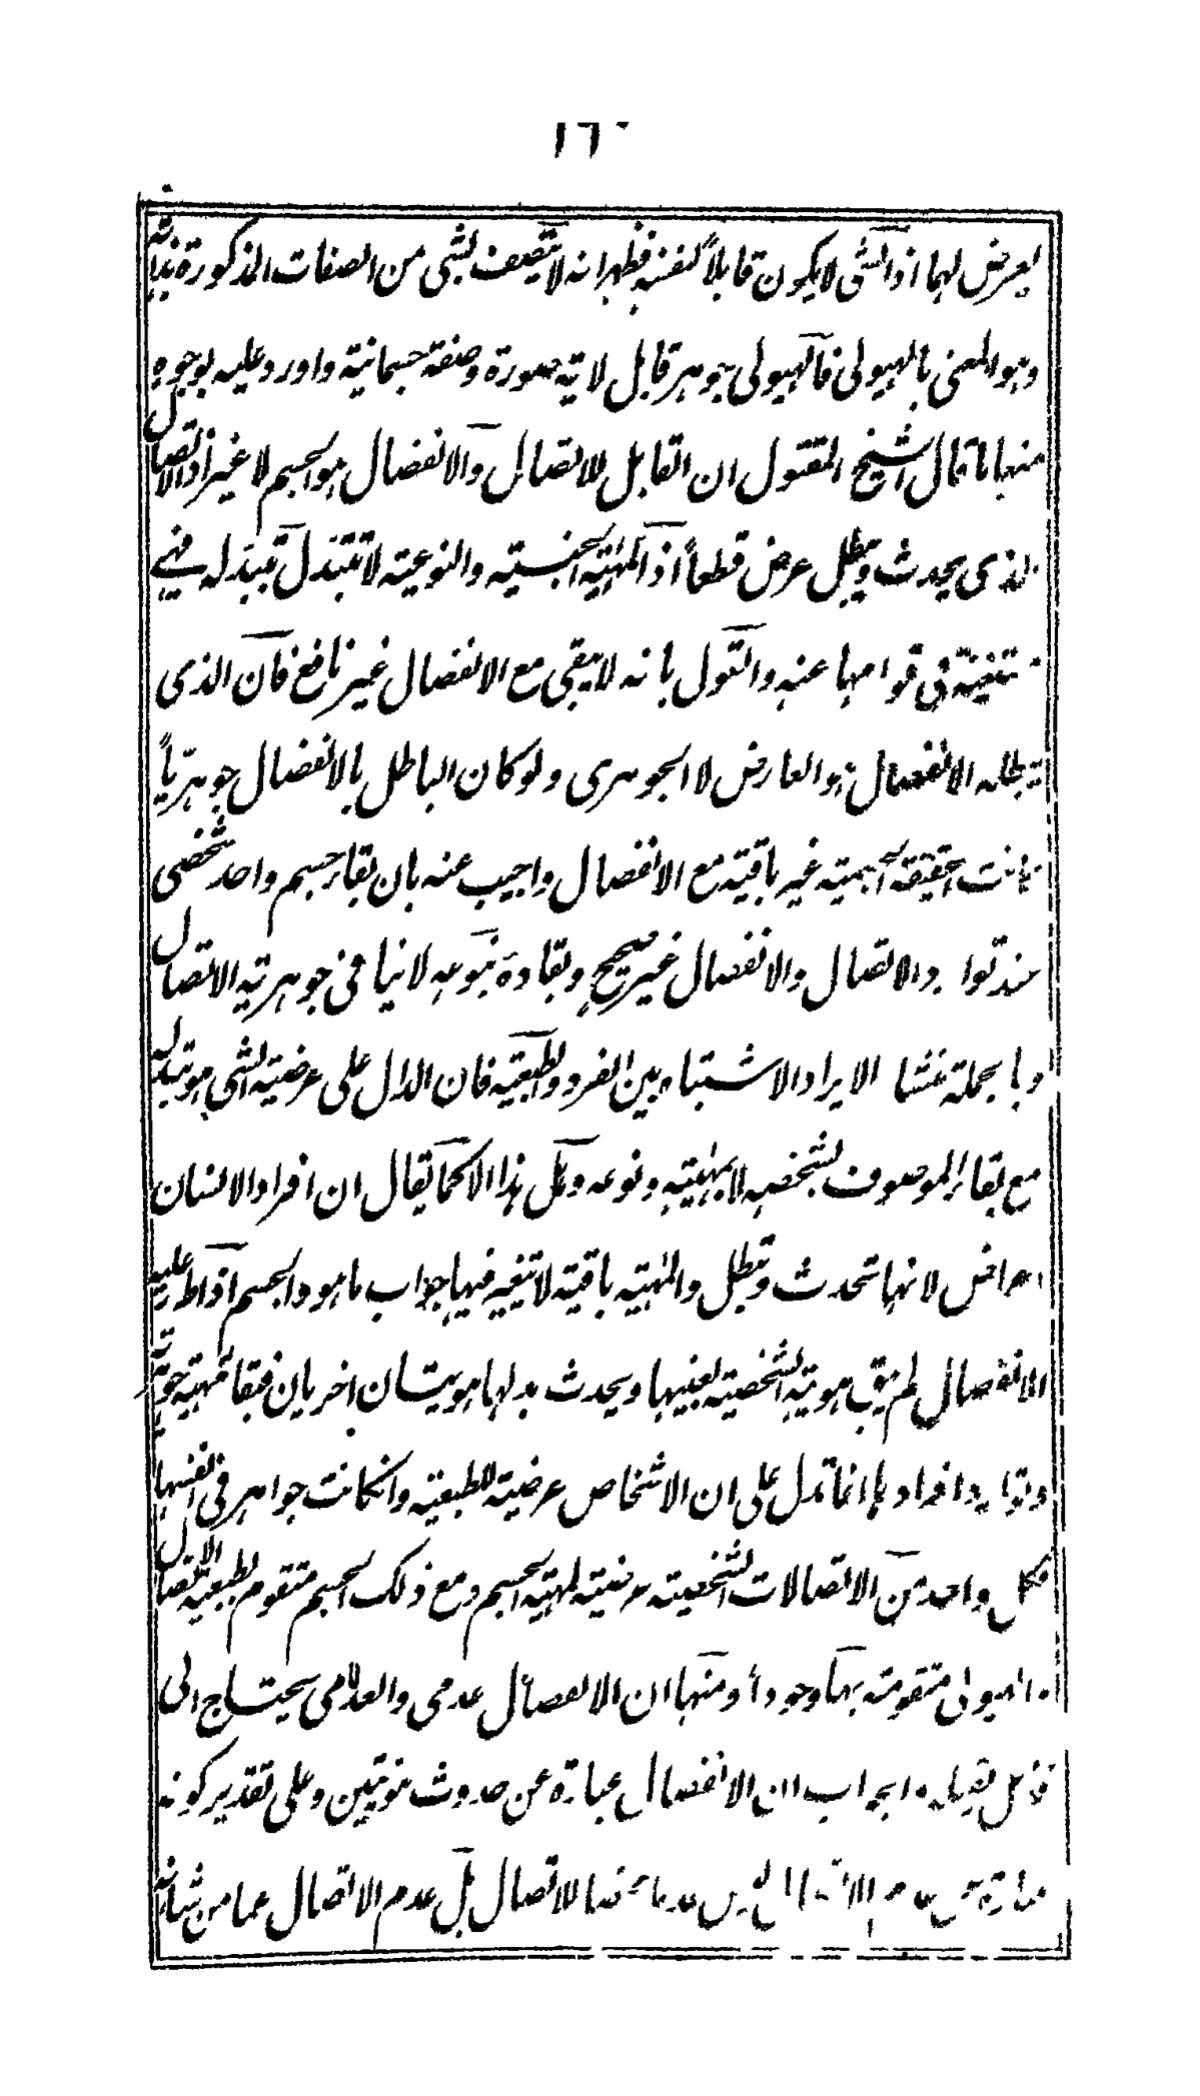 ١٦٠
يعرض لهما اذ الشى لا يكون قابلاً لنفسه فظهر انه لا يتصف بشى من الصفات المذكورة بذاته
وهو المعنى بالهيولى فالهيولى جوهر قابل لاية صورة وصفة جسمانية واورد عليه بوجوه
منها ما قال الشيخ المقتول ان القابل للاتصال والانفصال هو الجسم لا غير اذ الاتصال
الذى يحدث ويبطل عرض قطعاً اذ المهية الجنسية والنوعية لا تتبدل بتبدله فهى
مستغنية فى قوامها عنه والقول بانه لا يبقى مع الانفصال غير نافع فان الذى
يبطله الانفصال هو العارض لا الجوهرى ولو كان الباطل بالانفصال جوهرياً
كانت الحقيقة الجسمية غير باقية مع الانفصال واجيب عنه بان بقاء جسم واحد شخصى
عند توارد الاتصال والانفصال غير صحيح وبقاءه بنوعه لا ينافى جوهرية الاتصال
وبالجملة منشا الايراد الاشتباه بين الفرد والطبيعة فان الدال على عرضية الشى هو تبدله
مع بقاء الموصوف بشخصه لا بمهيته ونوعه وهل هذا الا كما يقال ان افراد الانسان
اعراض لانها تحدث وتبطل والمهية باقية لا يتغير فيها جواب ما هو والجسم اذا طرء عليه
الانفصال لم يبق هويته الشخصية بعينها ويحدث بدلها هويتان اخريان فبقاء مهية جوهرية
وتوارد افرادها انما تدل على ان الاشخاص عرضية للطبيعة وانكانت جواهر فى انفسها
فكل واحد من الاتصالات الشخصية عرضية لمهية الجسم ومع ذلك الجسم متقوم بطبيعة الاتصال
الهيولى متقومة بها وجوداً ومنها ان الانفصال عدمى والعدمى لا يحتاج الى
قابل والجواب ان الانفصال عبارة عن حدوث هويتين وعلى تقدير كونه
عبارة عن عدم الاتصال ليس عدما محضا للاتصال بل عدم الاتصال عما من شانه